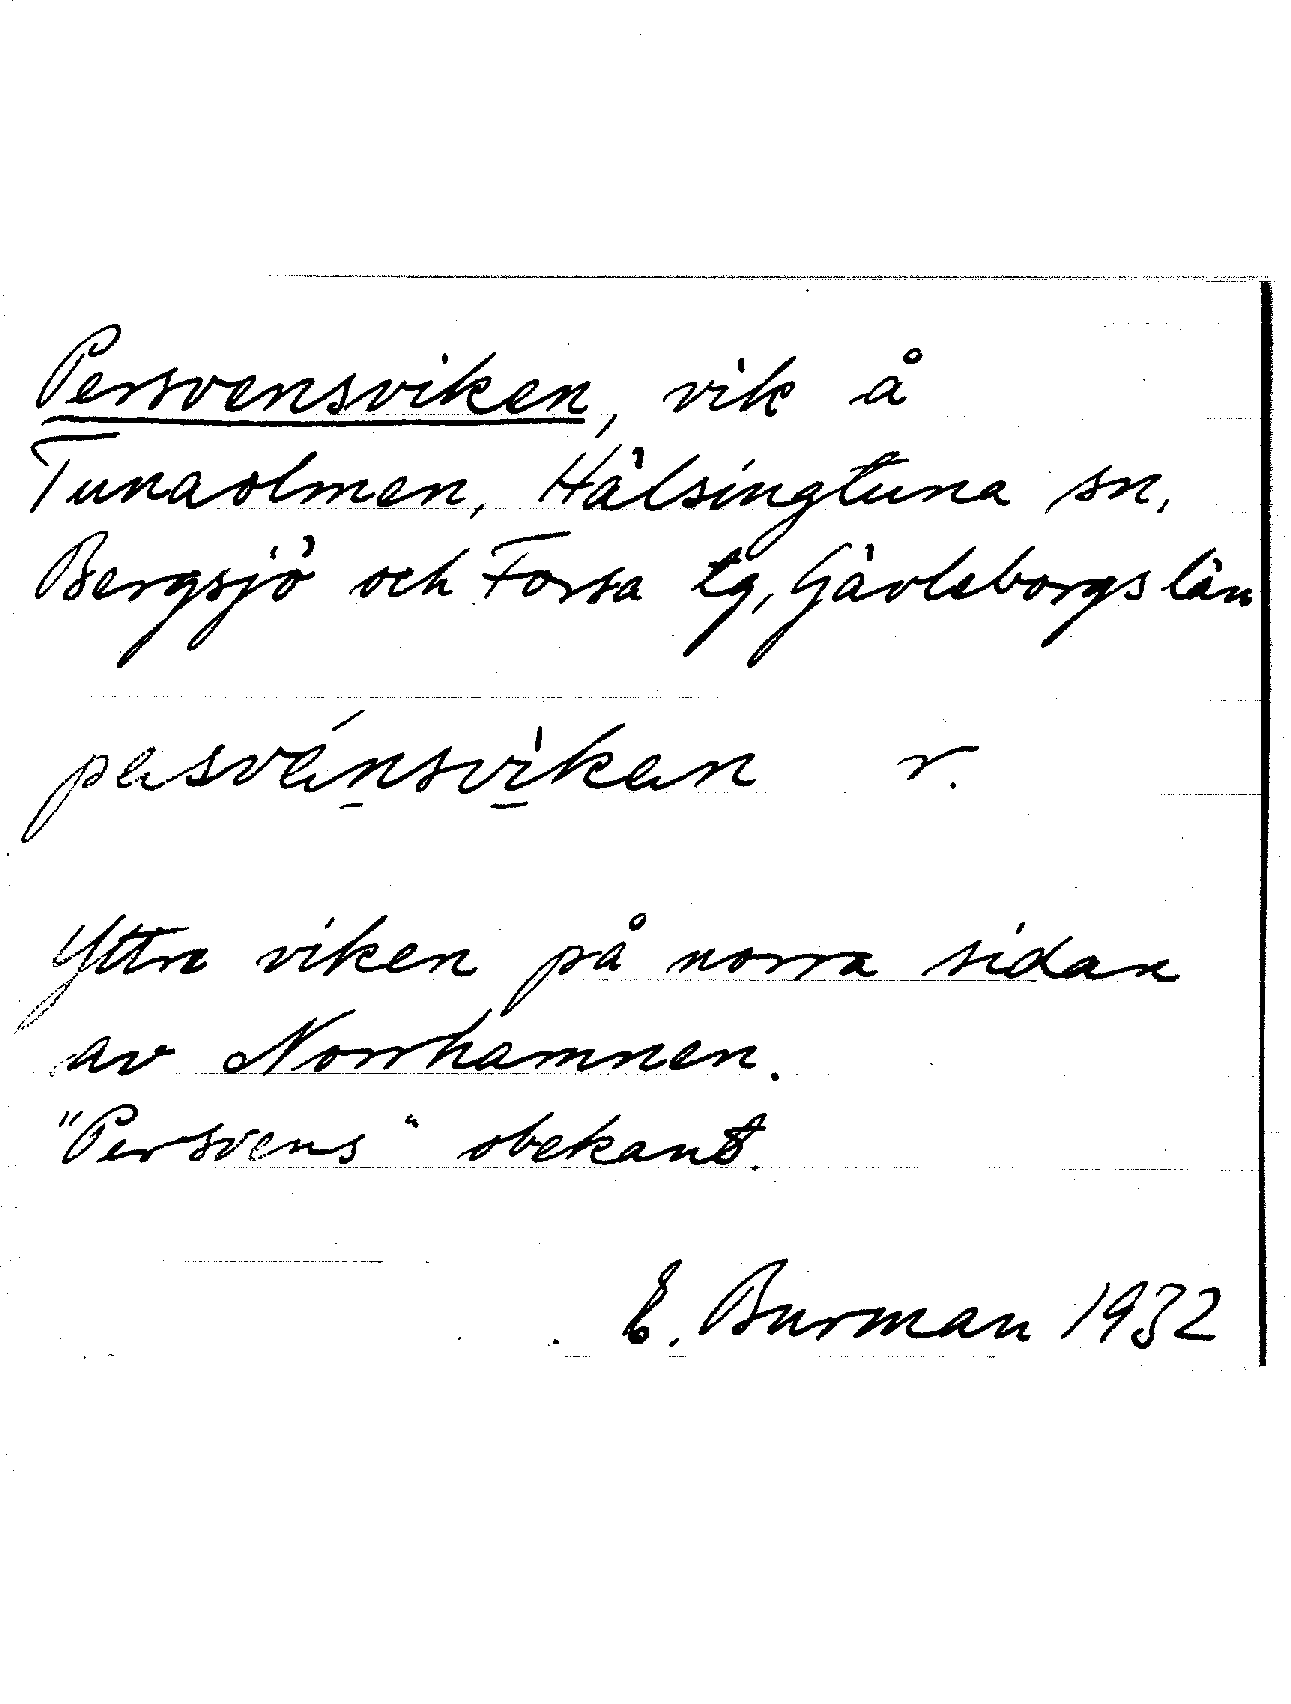 Persvensviken, vik å
Tunaolmen, Hälsingtuna sn,
Bergsjö och Forsa tg, Gävleborgs län
pasvánsvikan v.
Yttre viken på norra sidan
av Norrhamnen.
"Persvens" obekant.
E. Burman 1932